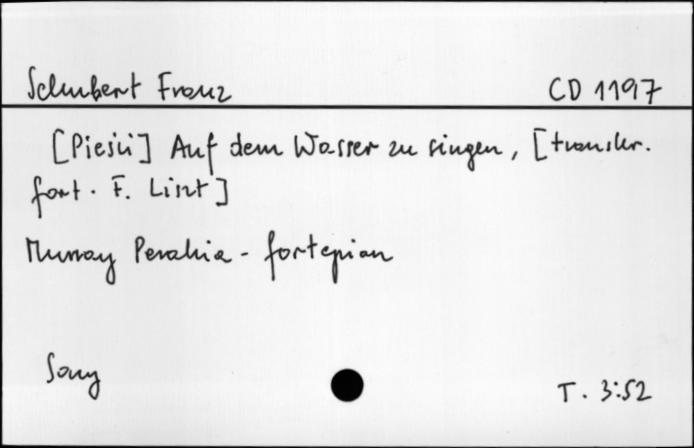 Schubert Franz CD 1197
[Pieśń] Auf dem Wasser zu singen, [transkr.
fort. F. Liszt]
Murray Perahia - fortepian
Sony T. 3:52